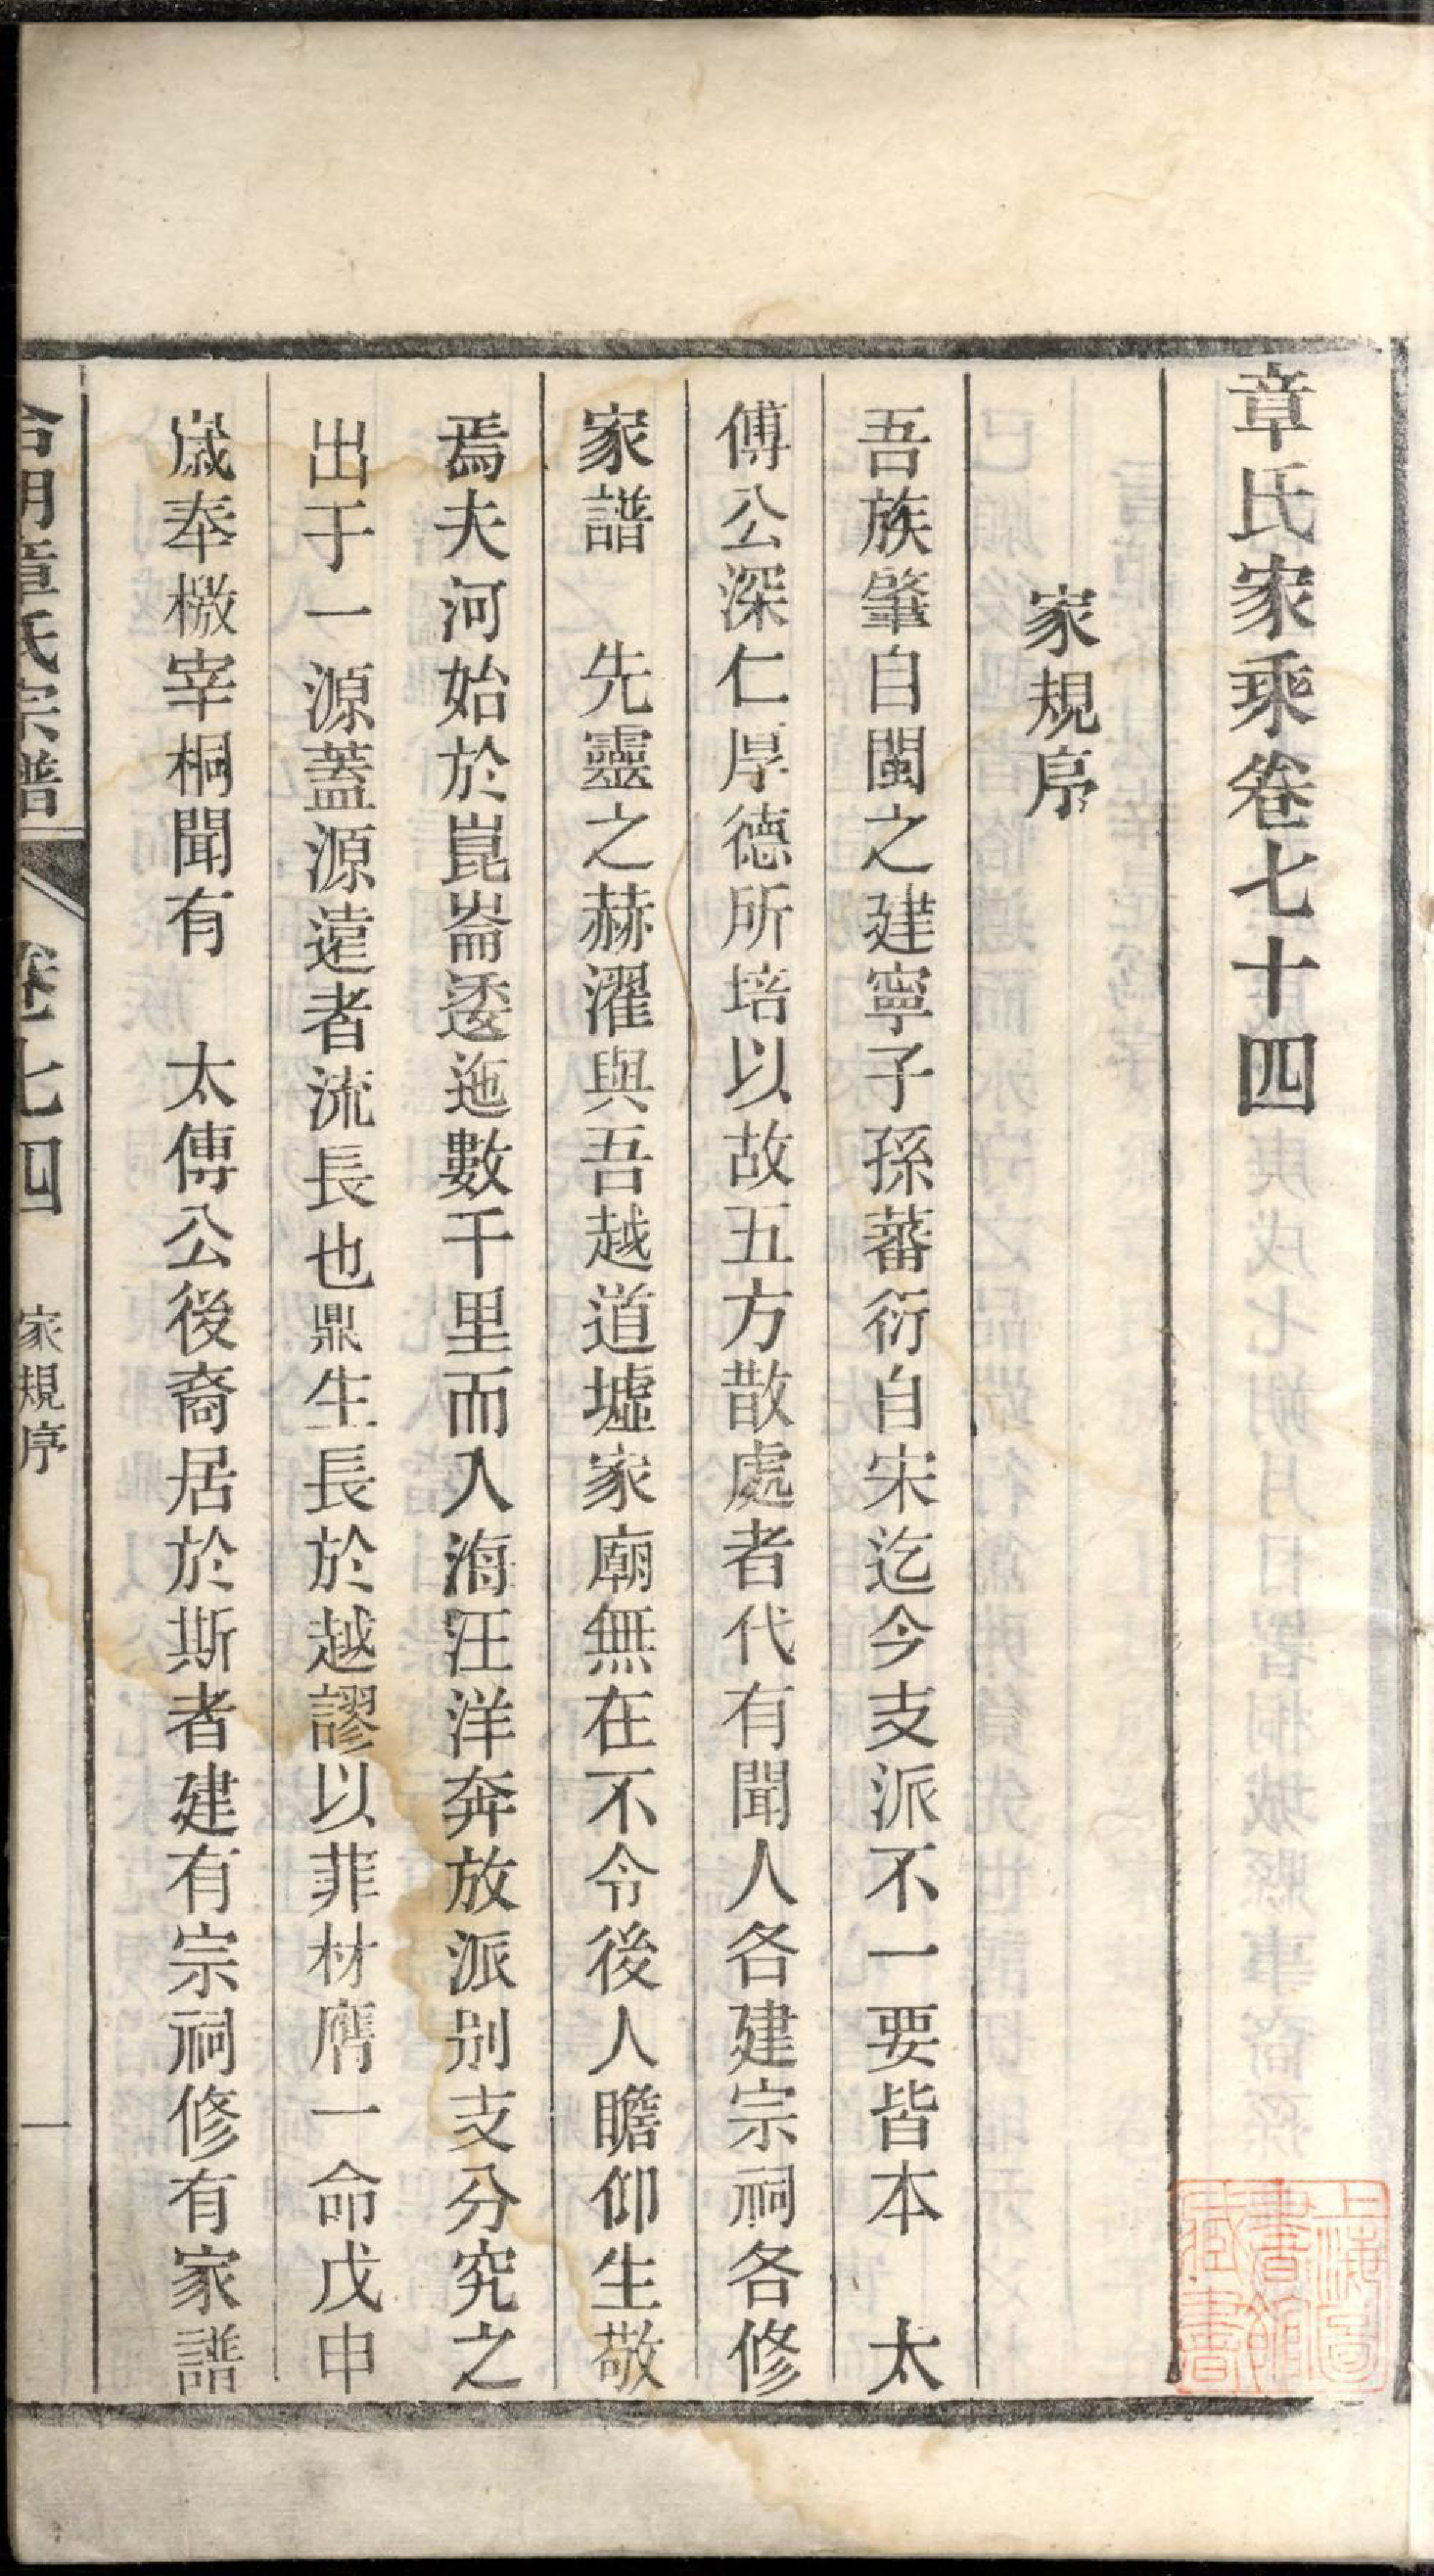 章氏家乘卷七十四
家規序
吾族肇自閩之建寧子孫蕃衍自宋迄今支派不一要皆本　太
傅公深仁厚德所培以故五方散處者代有聞人各建宗祠各修
家譜　先靈之赫濯與吾越道墟家廟無在不令後人瞻仰生敬
焉夫河始於崑崙逶迤數千里而入海汪洋奔放派别支分究之
出于一源蓋源遠者流長也鼎生長於越謬以菲材膺一命戊申
歲奉檄宰桐聞有　太傅公後裔居於斯者建有宗祠修有家譜
章氏宗譜　卷七四　家規序　一
上海圖書館藏書